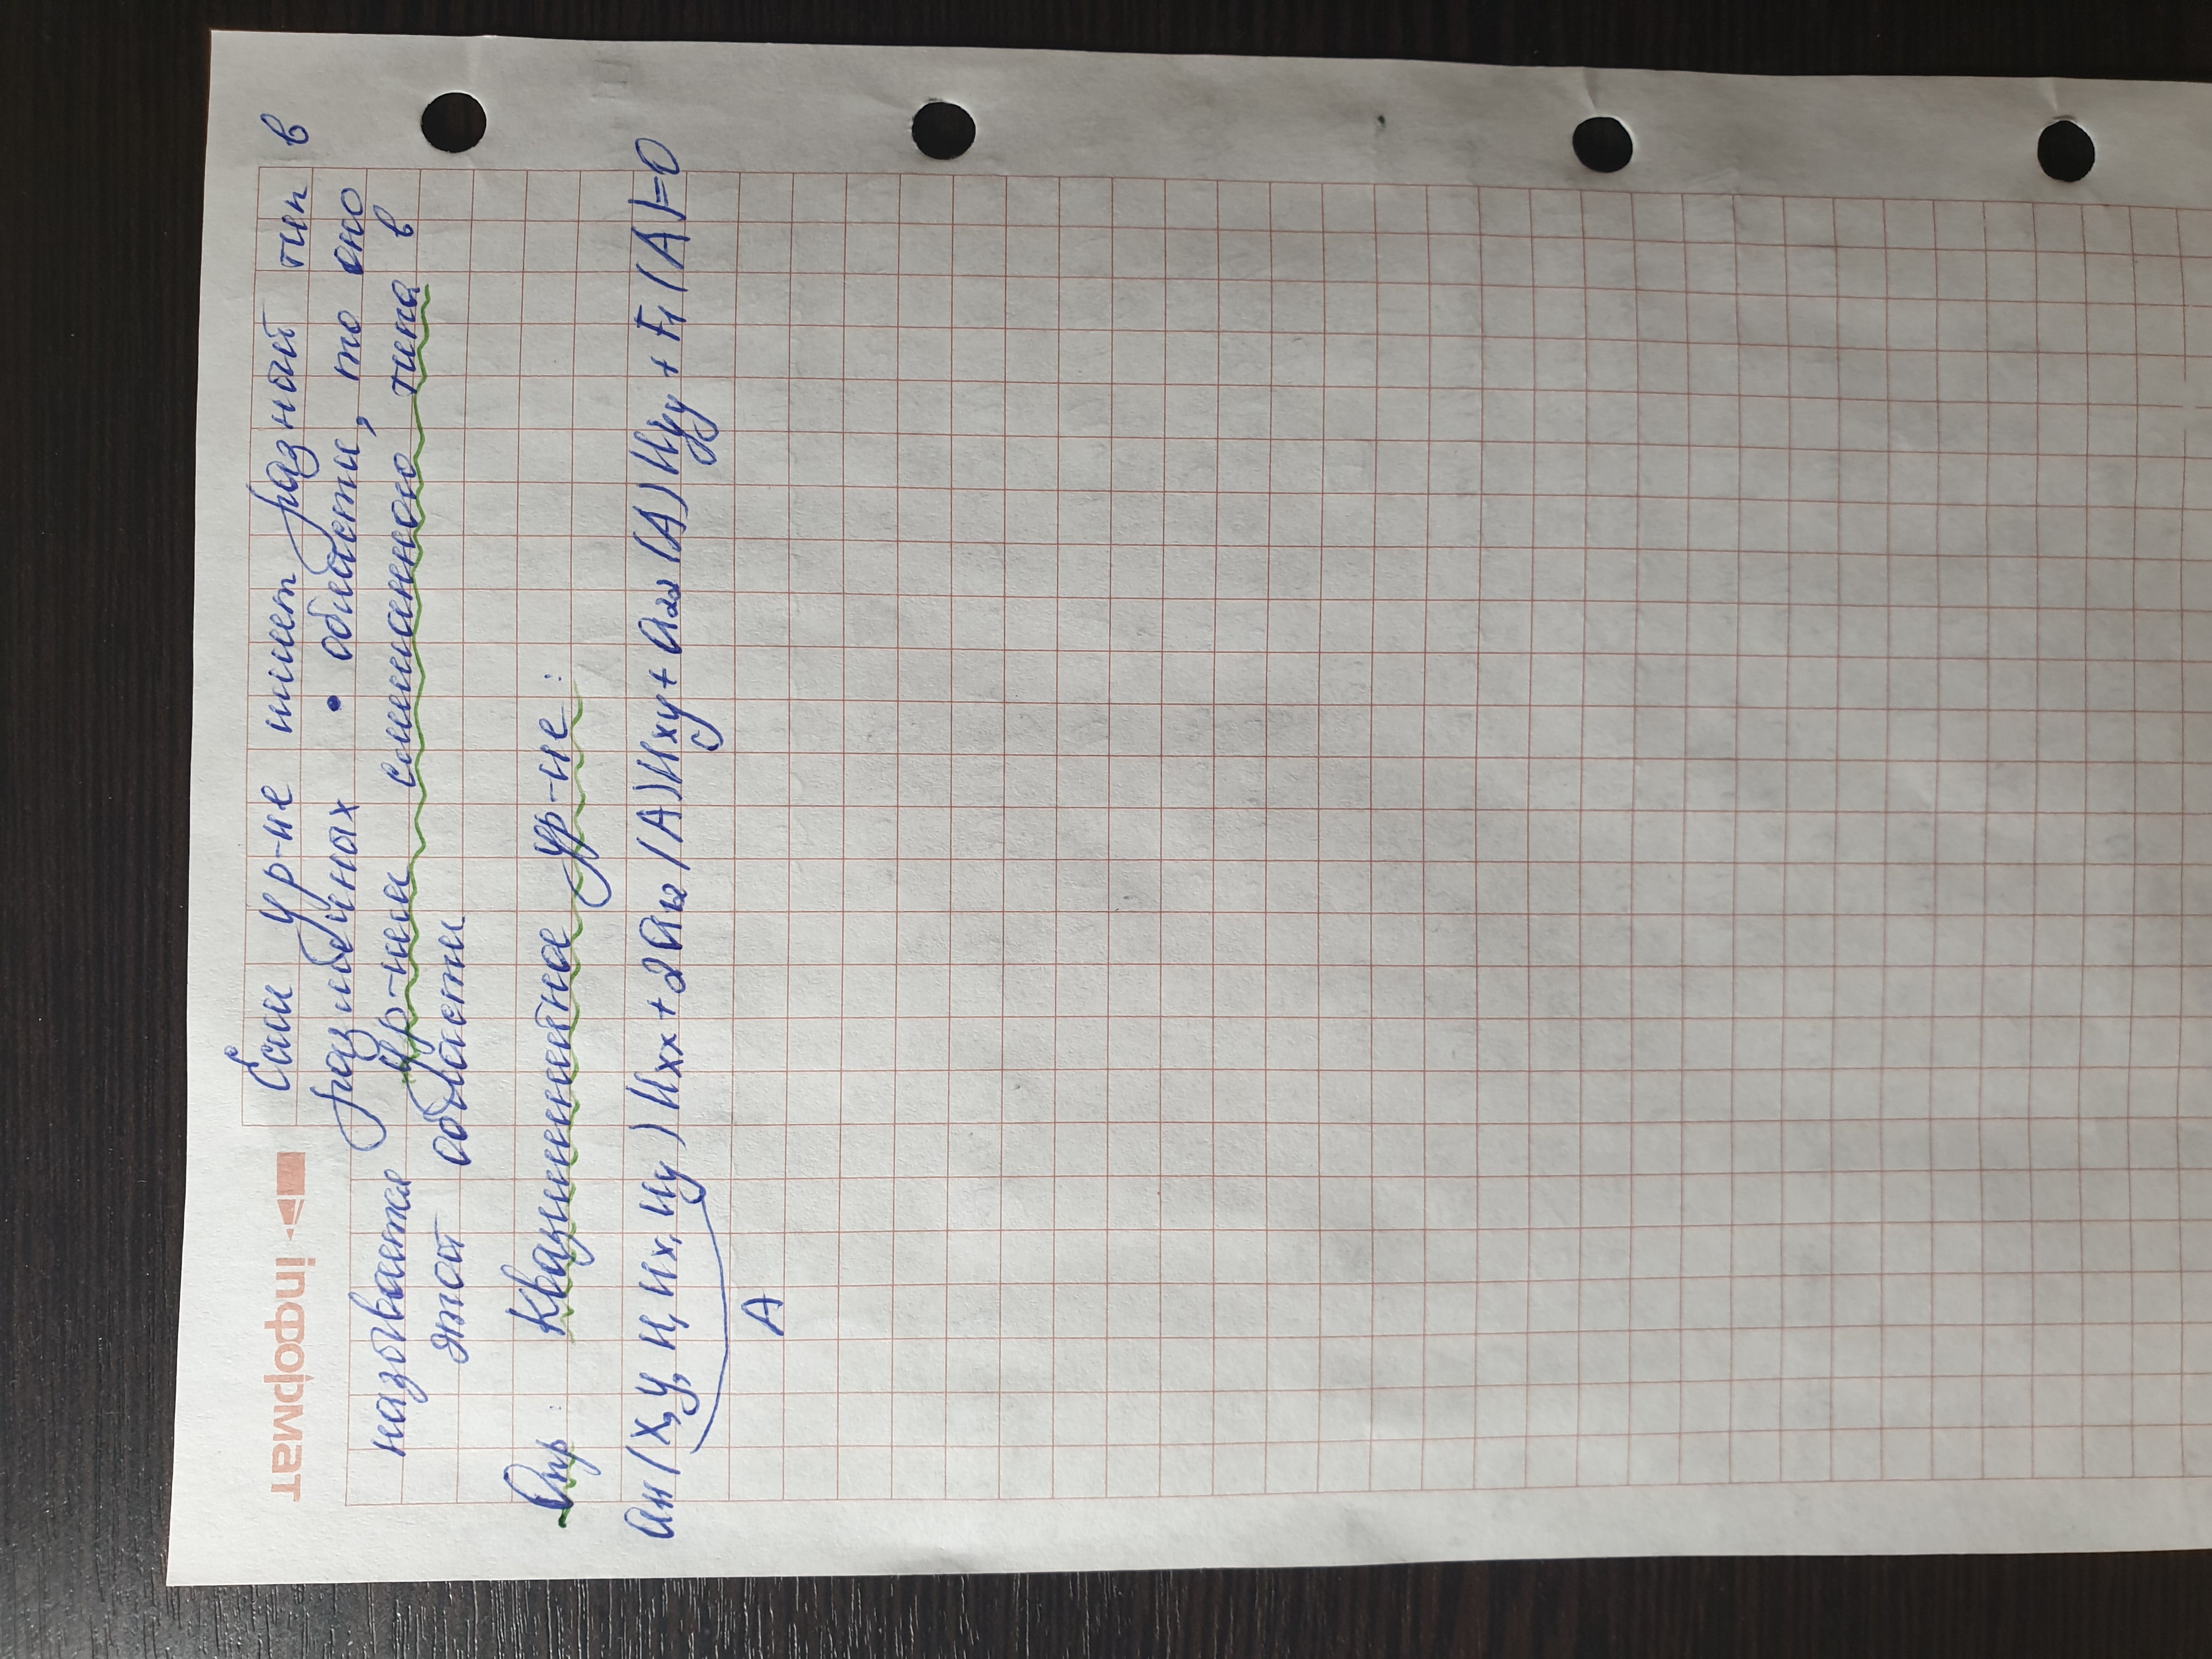 Если ур-ие имеет разный тип в
различных • области, то оно
информат
называется ур-ием смешанного типа в
этой области
Опр: Квазилинейное ур-ие:
a₁₁(x, y, u, uₓ, u_y) uₓₓ + 2a₁₂(A)uₓy + a₂₂(A) u_yy + F₁(A)=0
A